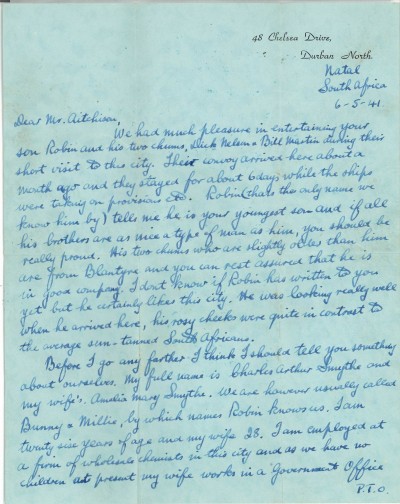 48 Chelsea Drive,
Durban North.
Natal
South Africa
6-5-41.
Dear Mr. Aitchison,
We had much pleasure in entertaining your
son Robin and his two chums, Dick Nelson & Bill Martin during their
short visit to this city. Their convoy arrived here about a
month ago and they stayed for about 6 days while the ships
were taking on provisions etc. Robin (thats the only name we
know him by) tells me he is your youngest son and if all
his brothers are as nice a type of man as him, you should be
really proud. His two chums who are slightly older than him
are from Blantyre and you can rest assured that he is
in good company. I dont know if Robin has written to you
yet but he certainly likes this city. He was looking really well
when he arrived here, his rosy cheeks were quite in contrast to
the average sun-tanned South Africans.
Before I go any farther I think I should tell you something
about ourselves. My full name is Charles Arthur Smythe and
my wife's, Amelia Mary Smythe. We are however usually called
Bunny & Millie, by which names Robin knows us. I am
twenty six years of age and my wife 28. I am employed at
a firm of wholesale chemists in this city and as we have no
children at present my wife works in a Government Office
P.T.O.